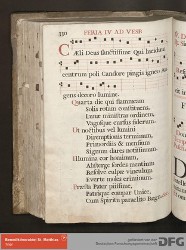 390 FERIA IV AD VESP
Cæli Deus sanctissime Qui lucidum
centrum poli Candore pingis igneo
gens decoro lumine.
Quarta die qui flammeam
Solis rotam constituens,
Lunæ ministras ordinem,
Vagosque cursus siderum.
Ut noctibus vel lumini
Diremptionis terminum,
Primordiis & mensium
Signum dares notissimum.
Illumina cor hominum,
Absterge sordes mentium
Resolve culpæ vinculum
Everte moles criminum.
Præsta Pater piissime,
Patrique compar Unice,
Cum Spiritu paraclito
DFG